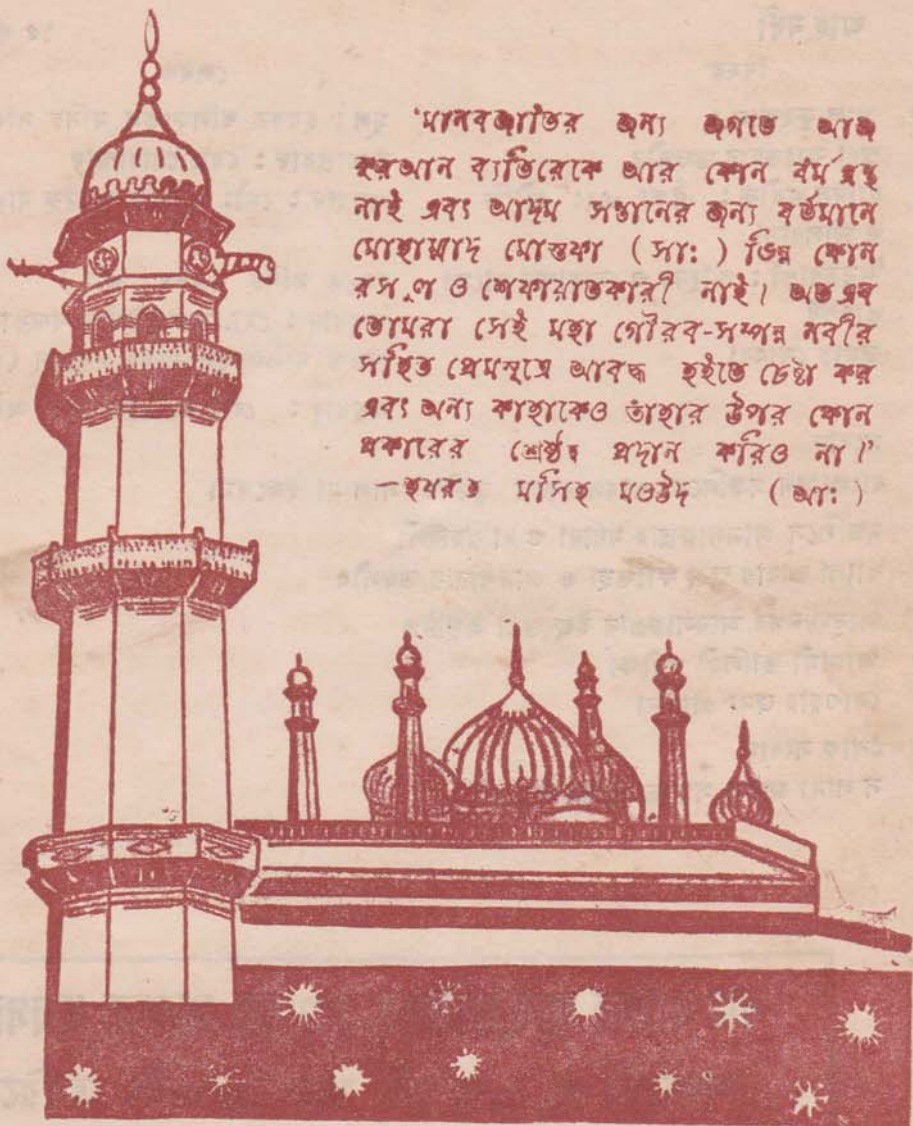 'মানবজাতির জন্য জগতে আজ
কুরআন ব্যতিরেকে আর কোন ধর্ম গ্রন্থ
নাই এবং আদম সন্তানের জন্য বর্তমানে
মোহাম্মাদ মোস্তফা (সাঃ) ভিন্ন কোন
রসূল ও শেফায়াতকারী নাই। অতএব
তোমরা সেই মহা গৌরব-সম্পন্ন নবীর
সহিত প্রেমসূত্রে আবদ্ধ হইতে চেষ্টা কর
এবং অন্য কাহাকেও তাঁহার উপর কোন
প্রকারের শ্রেষ্ঠত্ব প্রদান করিও না।"
—হযরত মসিহ মওউদ (আঃ)